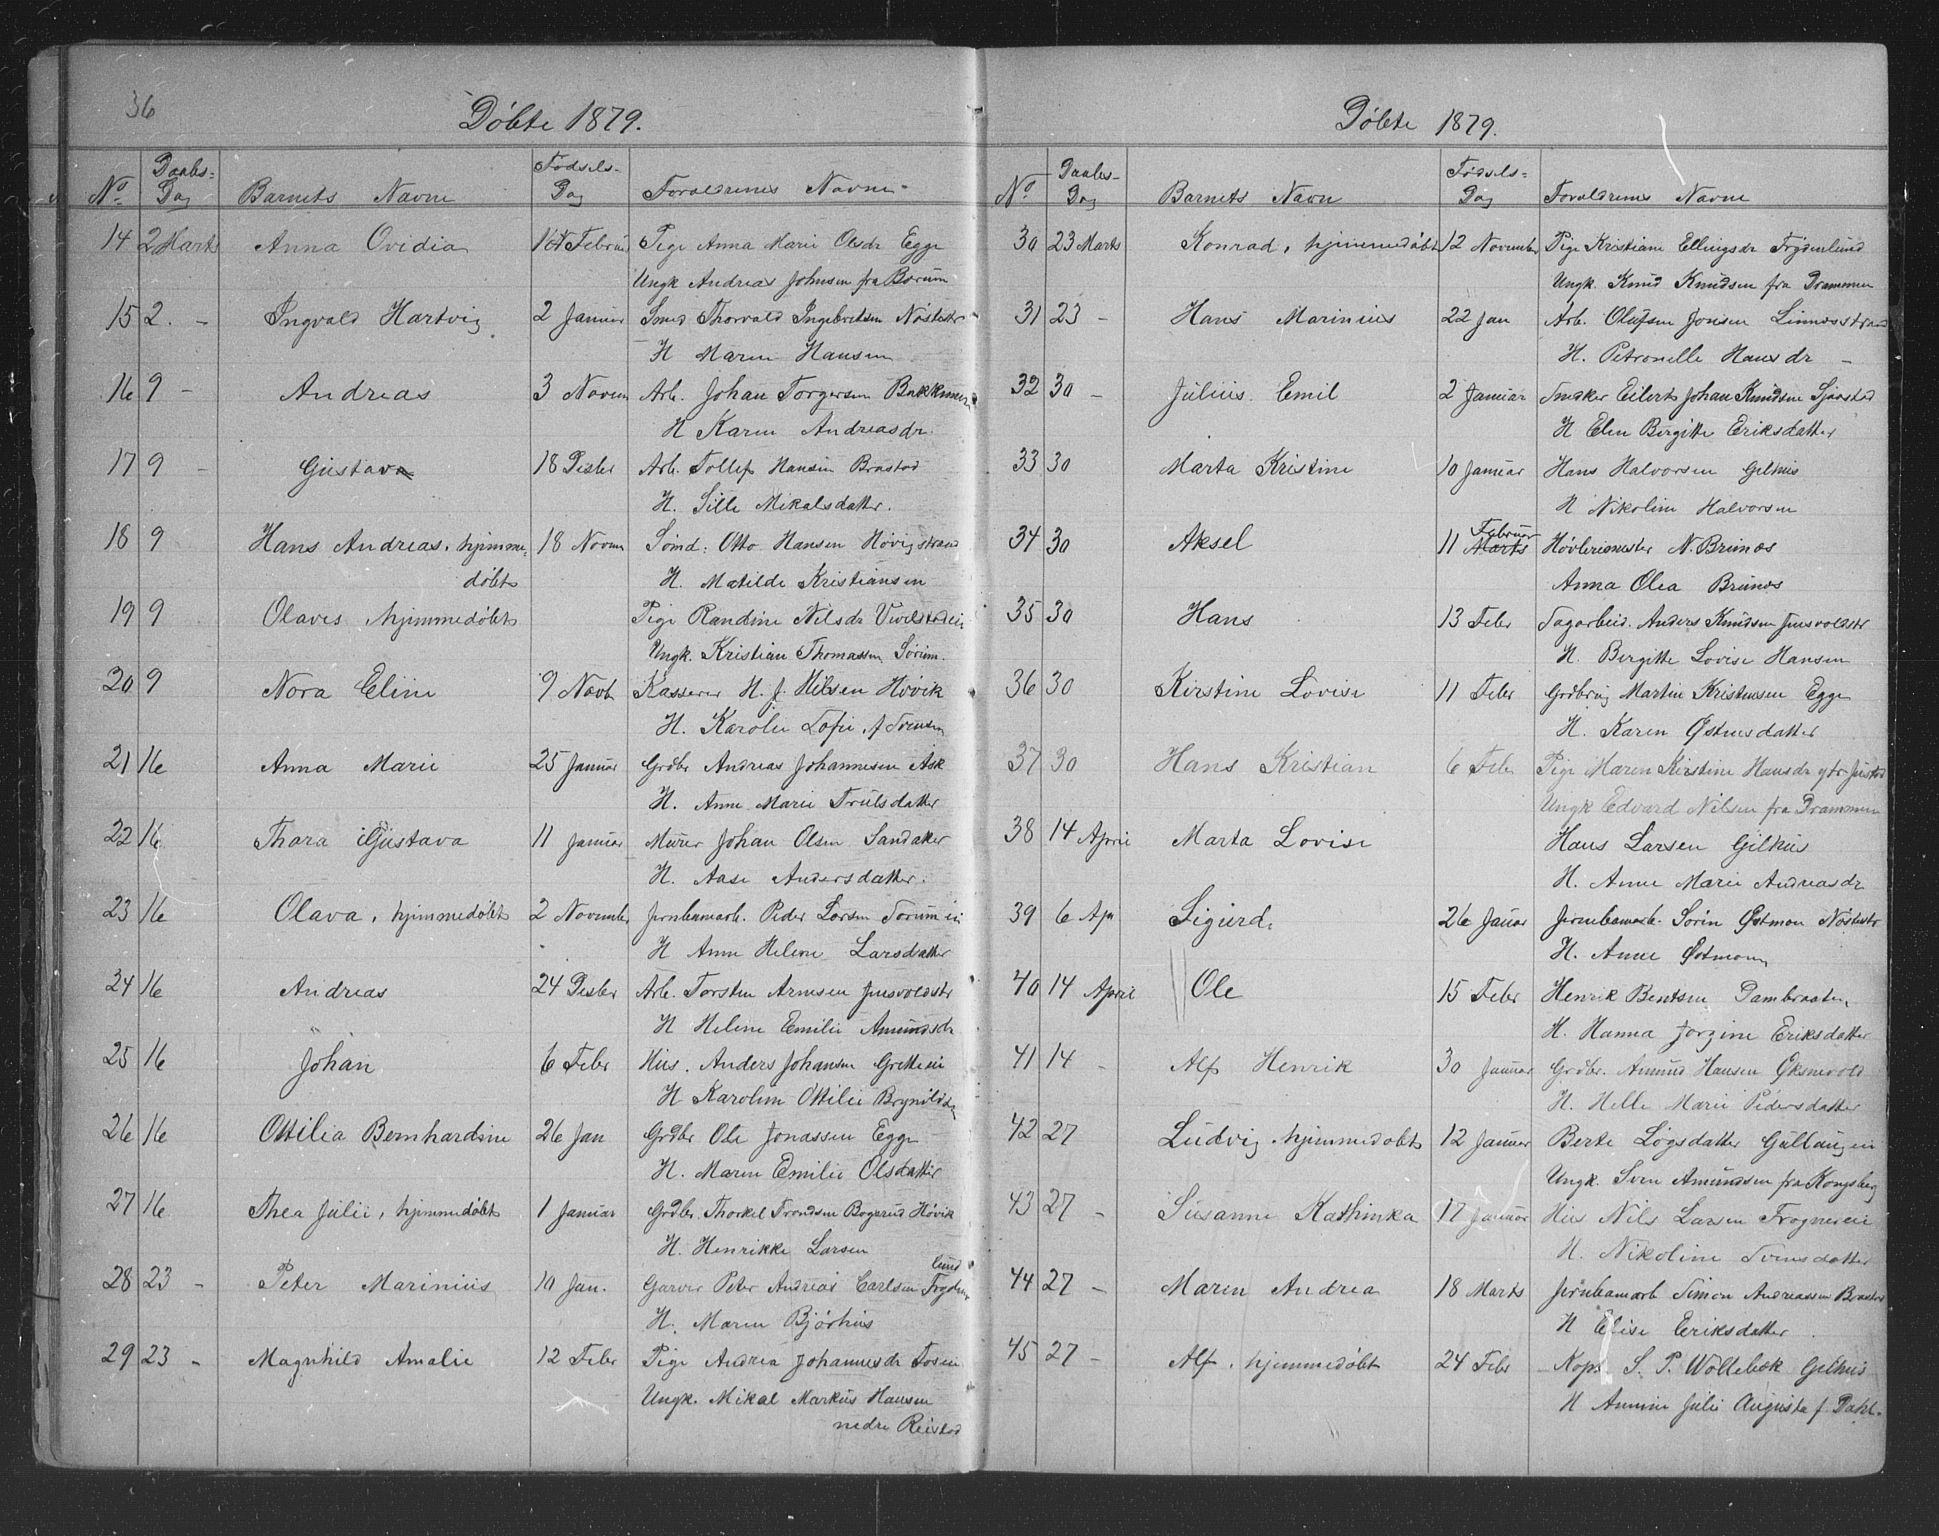 36
Döbte 1879.
No Daabs-Dag Barnets Navne Födsels-Dag Forældrenes Navne
14 2 Marts Anna Ovidia Februar Pige Anna Marie Olsdr Egge
Ungk Andreas Johnsen fra Bærum
15 2. - Ingvald Hartvig 2 Januar Smed Thorvald Ingebretsen Nöstestr
H Maren Hansen
16 9 - Andreas 3 Novem Arb. Johan Torgersen
H Karen Andreasdr.
17 9 - Gustav 18 Desbr Arb. Tollef Hansen Brastad
H. Sille Mikalsdatter.
18 9 Hans Andreas, hjemme- 18 Novem Sömd: Otto Hansen Hövigstrand
döbt H. Matilde Kristiansen
19 9 Olaves hjemmedöbt Pige Randine Nilsdr
Ungk. Kristian Thomassen Sörum.
20 9 Nora Eline 9 Novb Kasserer H. J. Nilsen Hövik
H. Karolie Sofie f Svensen
21 16 Anna Marie 25 Januar Grdbr Andreas Johannesen Ask
H. Anne Marie Trulsdatter
22 16 Thora Gustava 11 Januar Murer Johan Olsen Sandaker
H. Aase Andersdatter.
23 16 Olava, hjemmedöbt 2 Novembr Jernbanearb. Peder Larsen Sorum ei
H Anne Helene Larsdatter
24 16 Andreas 24 Desbr Arb. Torsten Arnesen Jensvoldstr
H Helene Emilie Amundsdr
25 16 Johan 6 Febr Hus. Anders Johansen Grette ei
H Karoline Ottilie Brynildsen
26 16 Ottilia Bernhardine 26 Jan Grdbr Ole Jonassen Egge
H. Maren Emilie Olsdatter
27 16 Thea Julie, hjemmedöbt 1 Januar Grdbr. Thorkel Trondsen Bogerud Hövik
H. Henrikke Larsen
28 23 - Peter Marinius 10 Jan. Garver Peter Andreas Carlsen Frydenlund
H. Maren Bjørhus
29 23 - Magnhild Amalie 12 Febr Pige Andrea Johannesdr Fosei
Ungk. Mikal Markus Hansen
nedre Reistad
Döbte 1879.
No Daabs-Dag Barnets Navn Födsels-Dag Forældrenes Navne
30 23 Marts Konrad, hjemmedöbt 12 November Pige Kristiane Ellingsdr Frydenlund
Ungk. Knud Knudsen fra Drammen
31 23 - Hans Marinius 22 Jan Arb. Olufsen Jonsen Linnesstrand
H. Petronelle Hansdr -
32 30 - Julius Emil 2 Januar Snekker Eilert Johan Knudsen Sjaastad
H Elen Bergitte Eriksdatter
33 30 Marta Kristine 10 Januar Hans Halvorsen Gilhus
H Nikoline Halvorsen
34 30 Aksel 11 Marts Februar Hövlerimester N. Brunæs
Anna Olea Brunæs
35 30 Hans 13 Febr Sagarbeid. Anders Knudsen Jensvoldstr
H. Bergitte Lovise Hansen
36 30 Kirstine Lovise 11 Febr Grdbrug Martin Kristensen Egge
H. Karen Østensdatter
37 30 Hans Kristian 6 Febr Pige Maren Kirstine Hansdr ytr Justad
Ungk Edvard Nilsen fra Drammen
38 14 April Marta Lovise Hans Larsen Gilhus
H. Anne Marie Andreasdr
39 6 Ap Sigurd. 26 Januar Jernbanearb. Sörin Østmoen Nöstestr
H. Anne Østmoen
40 14 April Ole 15 Febr Henrik Bentsen Dambraaten
H. Hanna Jorgine Eriksdatter
41 14 - Alf Henrik 30 Januar Grdbr. Amund Hansen Øksnevold
H. Helle Marie Pedersdatter
42 27 Ludvig hjemmedöbt 12 Januar Berte Logsdatter Gullaugei
Ungk. Sven Amundsen fra Kongsberg
43 27 - Susanne Kathinka 17 Januar Hus Nils Larsen Frognerei
H. Nikoline Svensdatter
44 27 - Maren Andrea 18 Marts Jernbanearb Simon Andreassen Brastad
H Elise Eriksdatter
45 27 - Alf, hjemmedöbt 24 Febr Kop. S. P. Wöllebæk Gilhus
H Annine Julie Augusta f. Dahl.